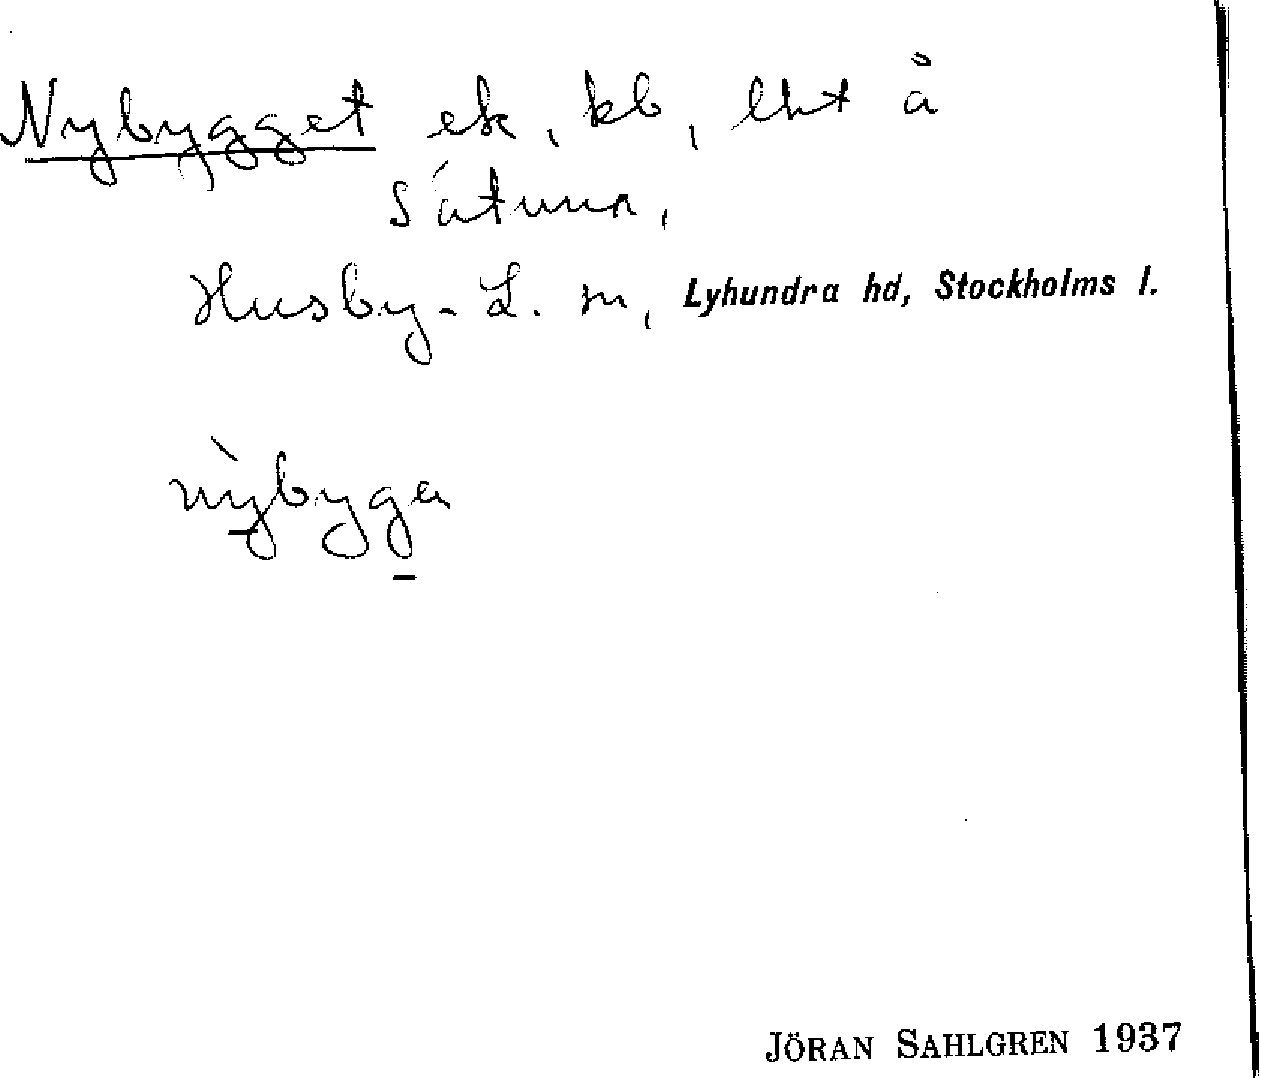 Nybygget ek, kb, lht å
Såtuna,
Husby-L. sn, Lyhundra hd, Stockholms l.
nỳbyga
JÖRAN SAHLGREN 1937